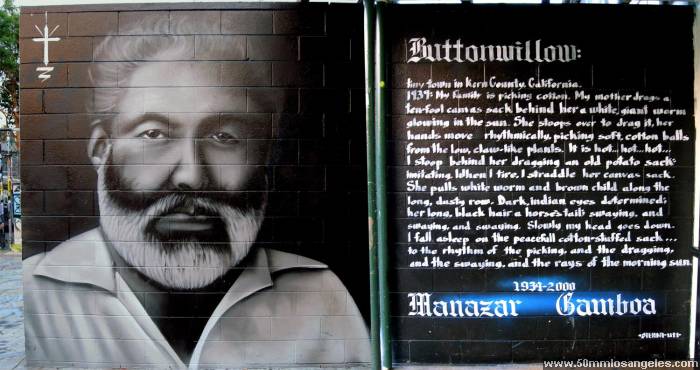 Buttonwillow:
tiny town in Kern County, California.
1939: My family is picking cotton. My mother drags a
ten-foot canvas sack behind her a white, giant worm
glowing in the sun. She stoops over to drag it, her
hands move rhythmically, picking soft, cotton balls
from the low, claw-like plants. It is hot... hot... hot...
I stoop behind her dragging an old potato sack:
imitating. When I tire, I straddle her canvas sack.
She pulls white worm and brown child along the
long, dusty row. Dark, indian eyes determined;
her long, black hair a horse's tail: swaying, and
swaying, and swaying. Slowly my head goes down.
I fall asleep on the peacefull cotton-stuffed sack...
to the rhythm of the picking, and the dragging,
and the swaying, and the rays of the morning sun.
1934-2000
Manazar Gamboa
www.50mmlosangeles.com